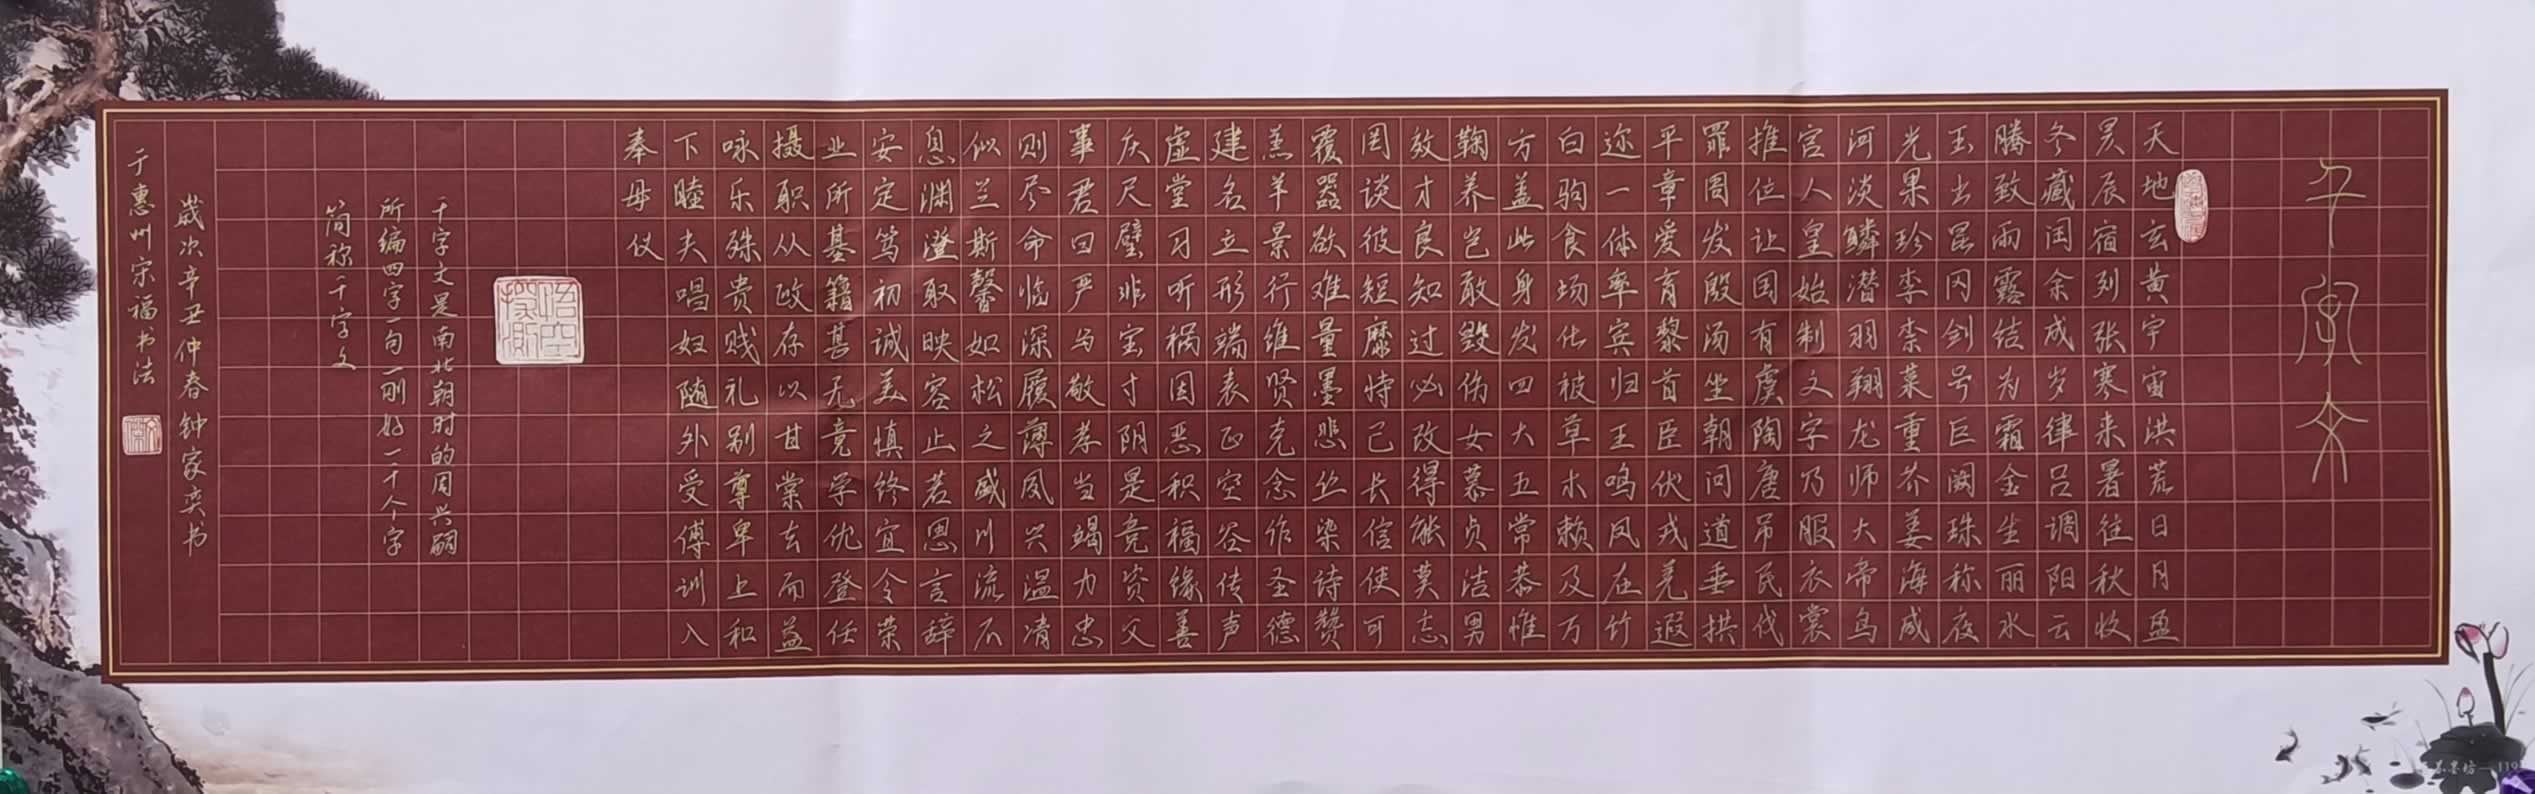 千字文
天地玄黄宇宙洪荒日月盈
昃辰宿列张寒来暑往秋收
冬藏闰余成岁律吕调阳云
腾致雨露结为霜金生丽水
玉出昆冈剑号巨阙珠称夜
光果珍李柰菜重芥姜海咸
河淡鳞潜羽翔龙师火帝鸟
官人皇始制文字乃服衣裳
推位让国有虞陶唐吊民伐
罪周发殷汤坐朝问道垂拱
平章爱育黎首臣伏戎羌遐
迩一体率宾归王鸣凤在竹
白驹食场化被草木赖及万
方盖此身发四大五常恭惟
鞠养岂敢毁伤女慕贞洁男
效才良知过必改得能莫忘
罔谈彼短靡恃己长信使可
覆器欲难量墨悲丝染诗赞
羔羊景行维贤克念作圣德
建名立形端表正空谷传声
虚堂习听祸因恶积福缘善
庆尺璧非宝寸阴是竞资父
事君曰严与敬孝当竭力忠
则尽命临深履薄夙兴温凊
似兰斯馨如松之盛川流不
息渊澄取映容止若思言辞
安定笃初诚美慎终宜令荣
业所基籍甚无竟学优登仕
摄职从政存以甘棠去而益
咏乐殊贵贱礼别尊卑上和
下睦夫唱妇随外受傅训入
奉母仪
悟空探测
千字文是南北朝时的周兴嗣
所编四字一句一刚好一千个字
简称千字文
歳次辛丑仲春钟家奕书
于惠州宋福书法